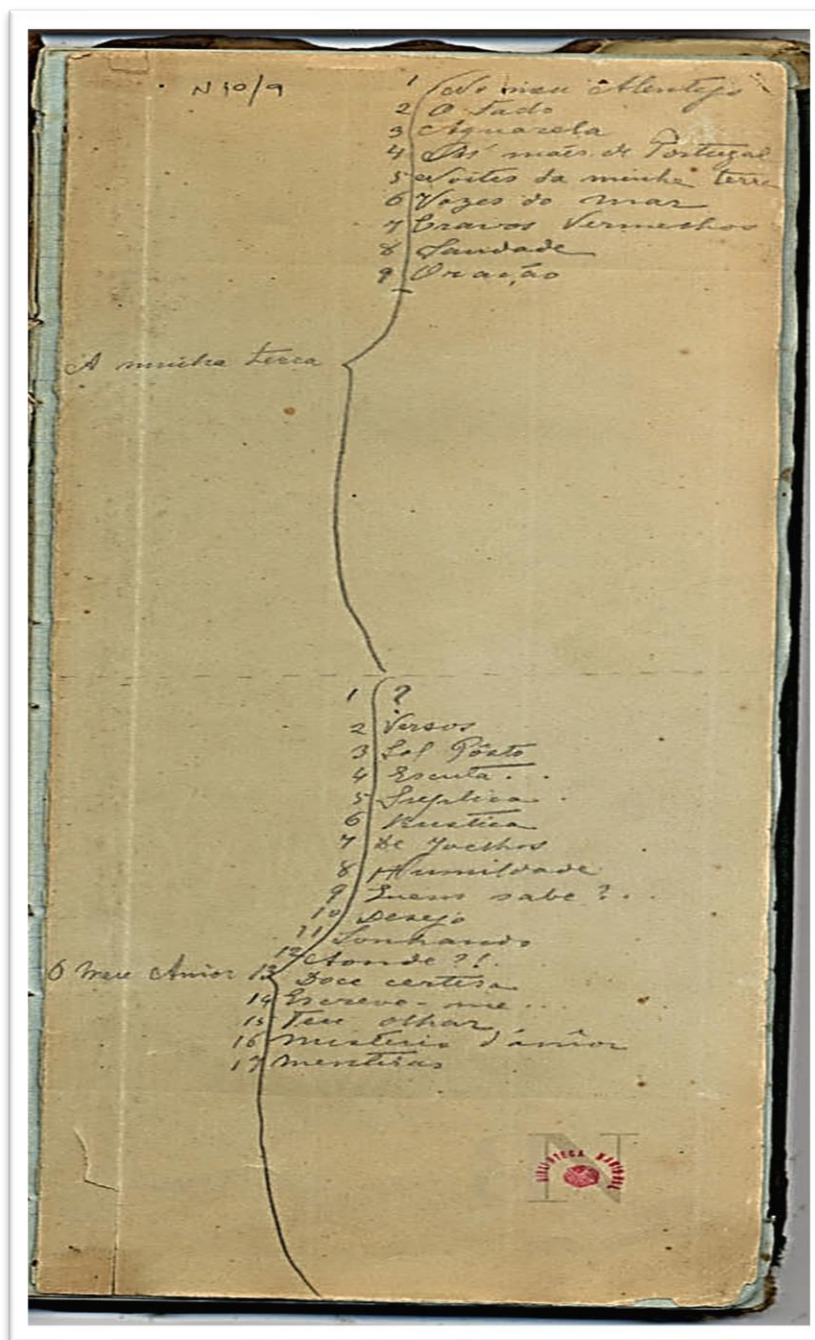 N10/9
1 No meu Alentejo
2 O Fado
3 Aguarela
4 Ás mais de Portugal
5 Noites da minha terra
6 Vozes do mar
7 Cravos Vermelhos
8 Saudade
9 Oração
A minha terra
1 ?
2 Versos
3 Sol Pôsto
4 Escuta..
5 Suplica.
6 Rustica
7 De Joelhos
8 Humildade
9 Quem sabe?..
10 Desejo
11 Sonhando
12 Aonde?!.
O meu Amor 13 Doce certesa
14 Escreve-me...
15 Teu olhar
16 Misterio d'amôr
17 Mentiras
N
BIBLIOTECA NACIONAL